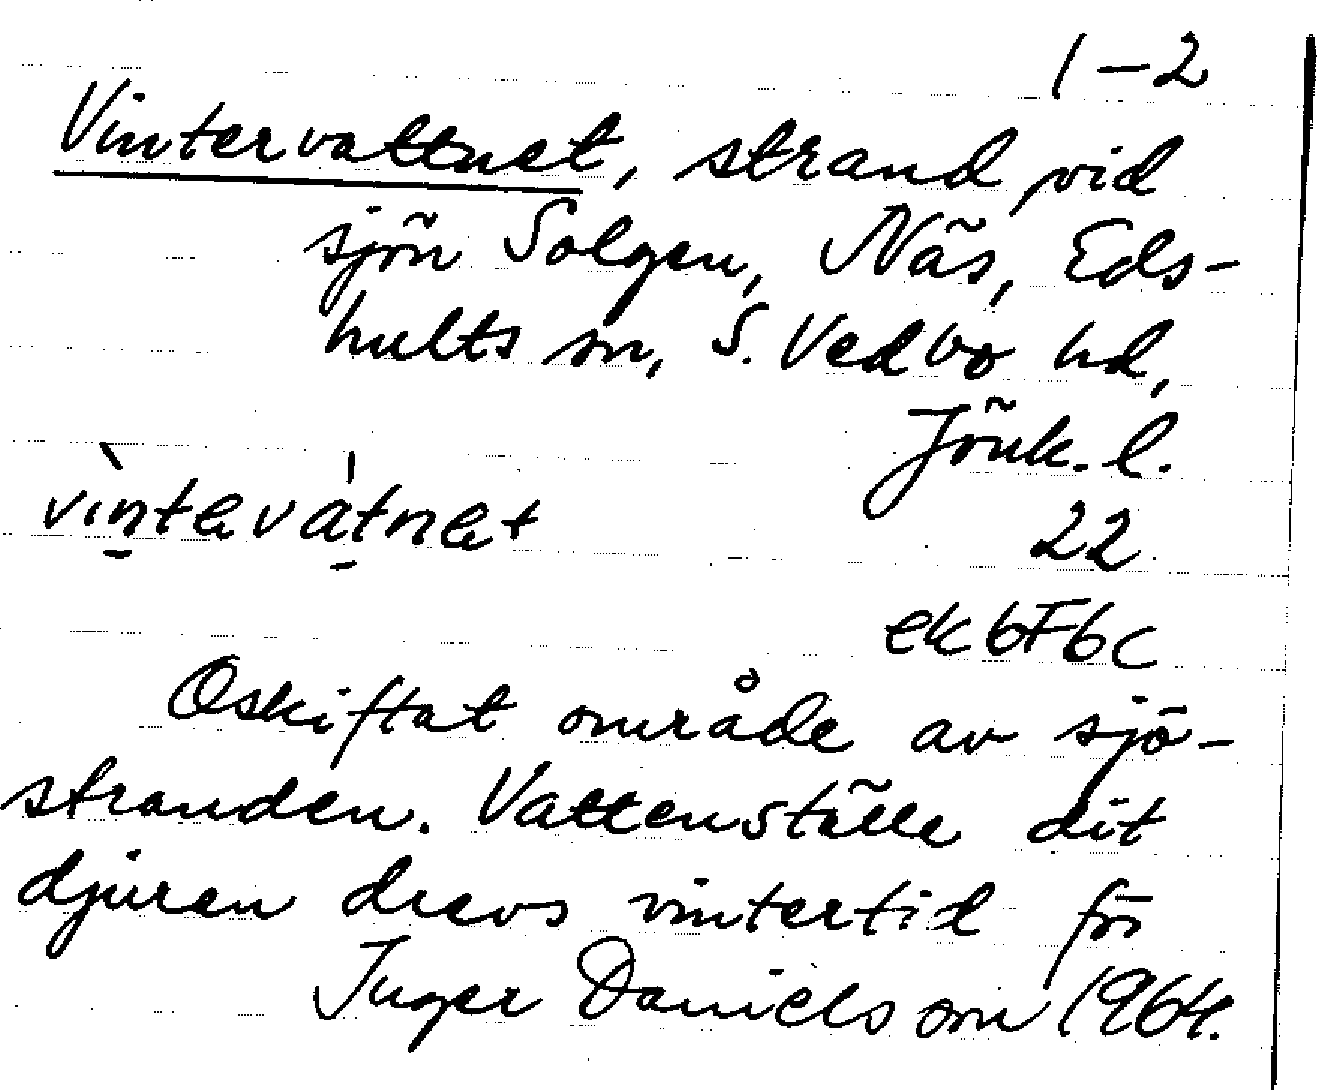 1-2
Vintervattnet, strand vid
sjön Solgen, Näs, Eds-
hults sn, S. Vedbo hd,
Jönk. l.
vìntevàtnet
22
ek6F6c
Oskiftat område av sjö-
stranden. Vattenställe dit
djuren drevs vintertid för
Inger Danielsson 1964.